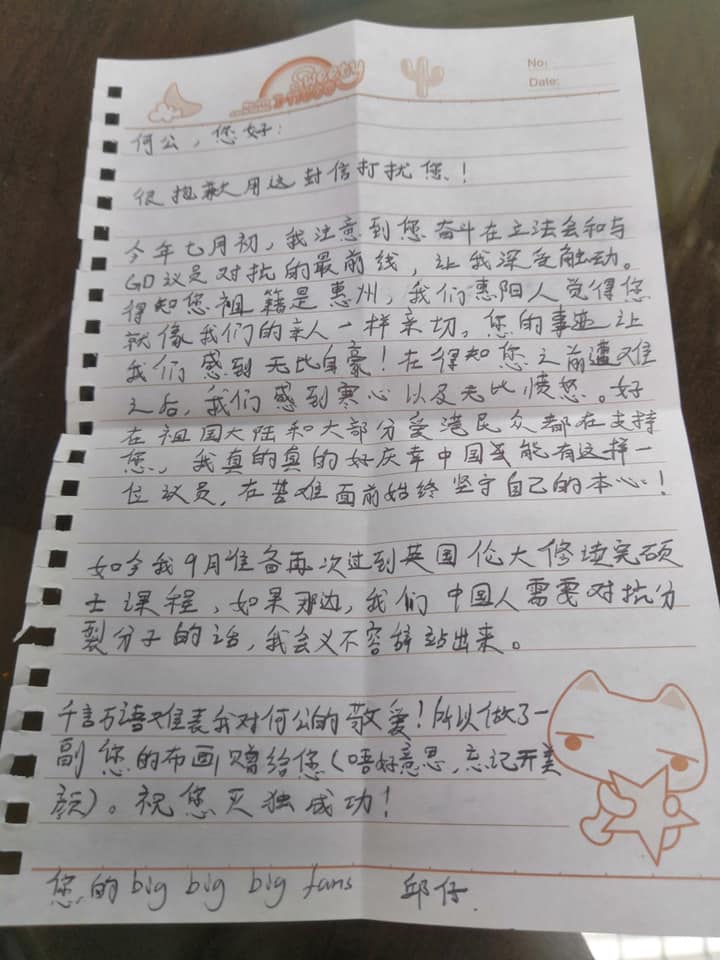 Sweety
No:
Date:
何公，您好：
很抱歉用这封信打扰您！
今年七月初，我注意到您奋斗在立法会和与
GD议员对抗的最前线，让我深受触动。
得知您祖籍是惠州，我们惠阳人觉得您
就像我们的亲人一样亲切。您的事迹让
我们感到无比自豪！在得知您之前遭难
之后，我们感到寒心以及无比愤怒。好
在祖国大陆和大部分爱港民众都在支持
您，我真的真的好庆幸中国能有这样一
位议员，在苦难面前始终坚守自己的本心！
如今我9月准备再次过到英国伦大修读完硕
士课程，如果那边，我们中国人需要对抗分
裂分子的话，我会义不容辞站出来。
千言万语难表我对何公的敬爱！所以做了一
副您的布画赠给您（唔好意思，忘记开美
颜）。祝您灭独成功！
您的big big big fans 邱仔